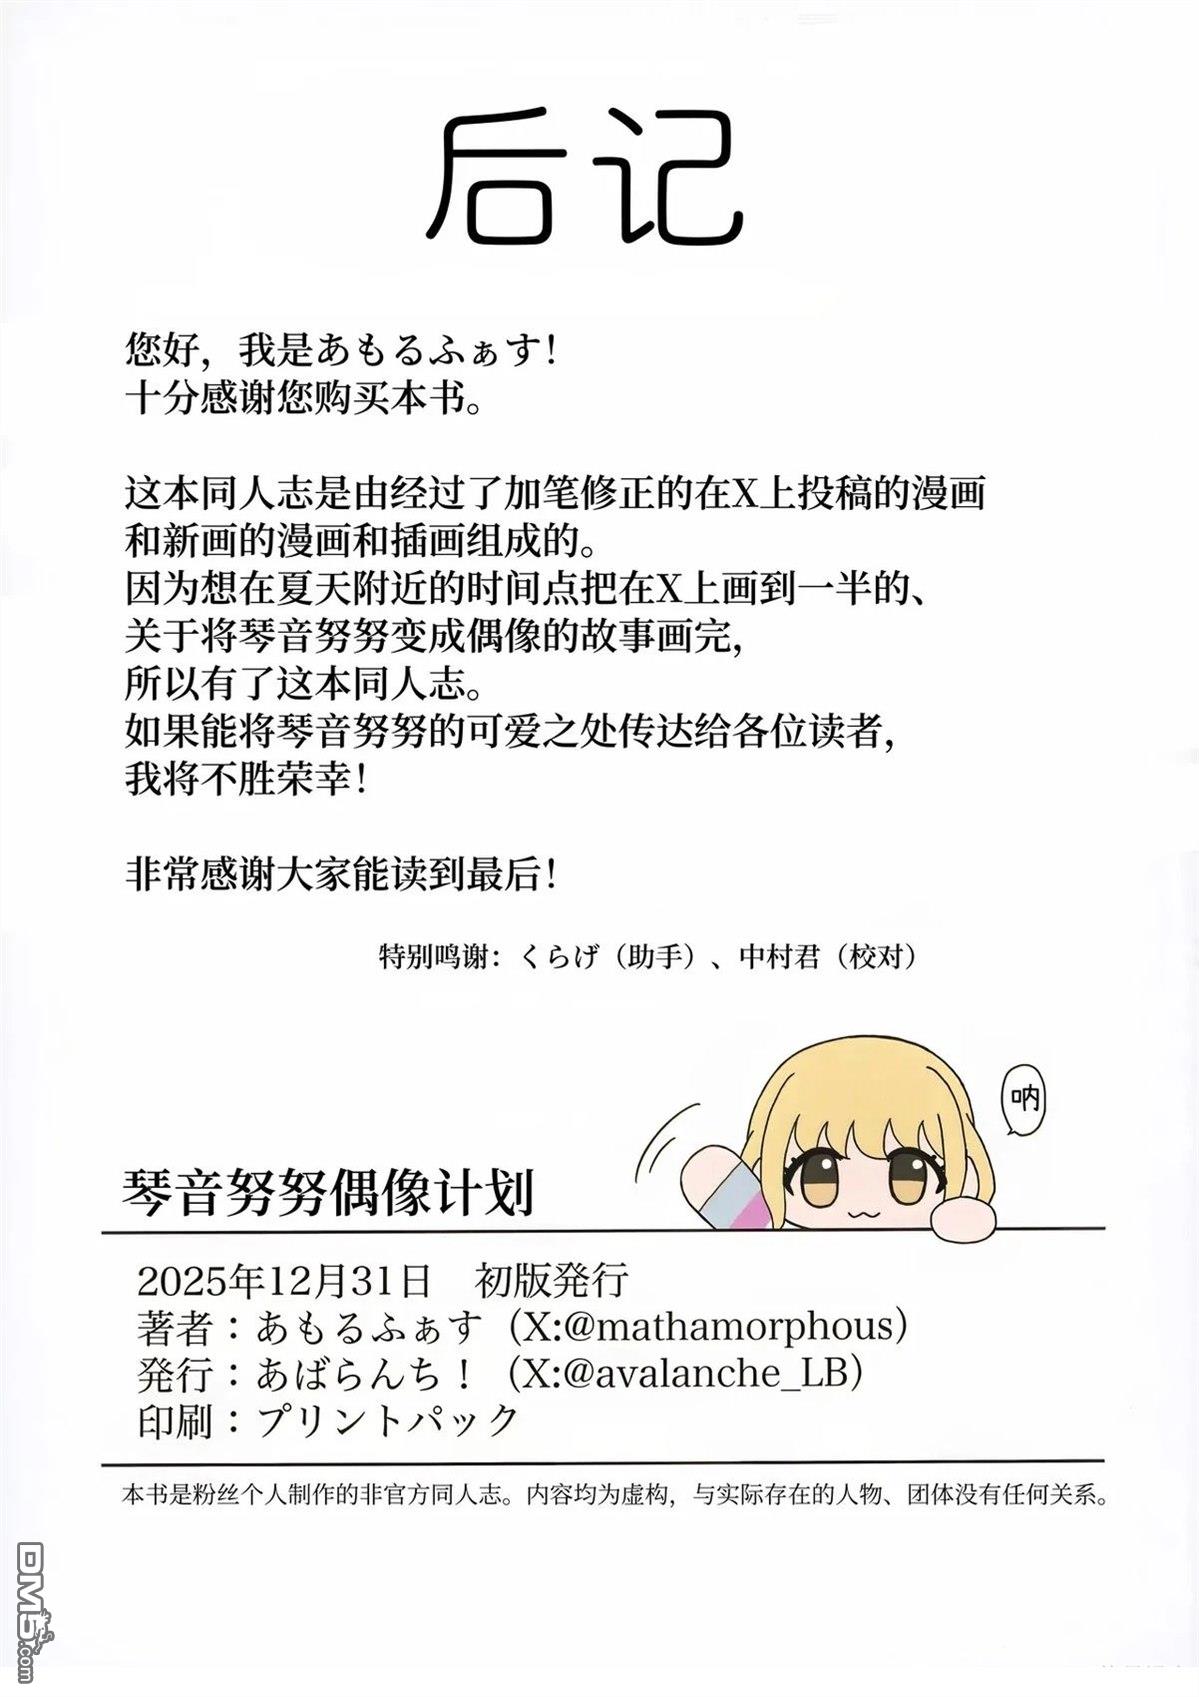 后记
您好，我是あもるふぁす！
十分感谢您购买本书。
这本同人志是由经过了加笔修正的在X上投稿的漫画
和新画的漫画和插画组成的。
因为想在夏天附近的时间点把在X上画到一半的、
关于将琴音努努变成偶像的故事画完，
所以有了这本同人志。
如果能将琴音努努的可爱之处传达给各位读者，
我将不胜荣幸！
非常感谢大家能读到最后！
特别鸣谢：くらげ（助手）、中村君（校对）
呐
琴音努努偶像计划
2025年12月31日　初版発行
著者：あもるふぁす（X:@mathamorphous）
発行：あばらんち！（X:@avalanche_LB）
印刷：プリントパック
本书是粉丝个人制作的非官方同人志。内容均为虚构，与实际存在的人物、团体没有任何关系。
DM5.com